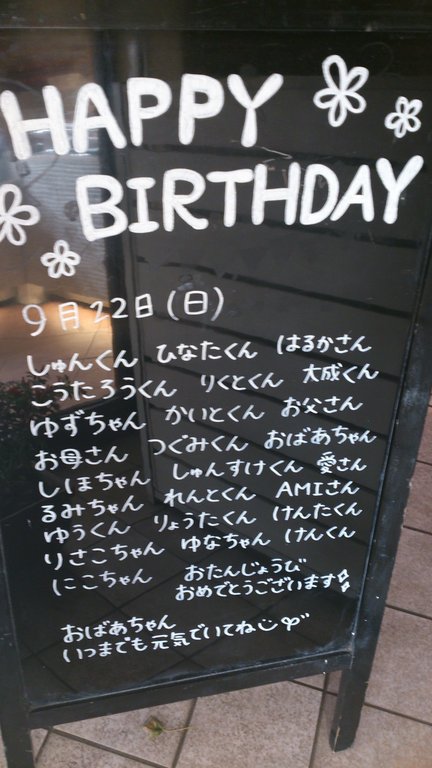 HAPPY
BIRTHDAY
9月22日(日)
しゅんくん ひなたくん はるかさん
こうたろうくん りくとくん 大成くん
ゆずちゃん かいとくん お父さん
お母さん つぐみくん おばあちゃん
しほちゃん しゅんすけくん 愛さん
るみちゃん れんとくん AMIさん
ゆうくん りょうたくん けんたくん
りさこちゃん ゆなちゃん けんくん
にこちゃん おたんじょうび
おめでとうございます
おばあちゃん
いつまでも元気でいてね